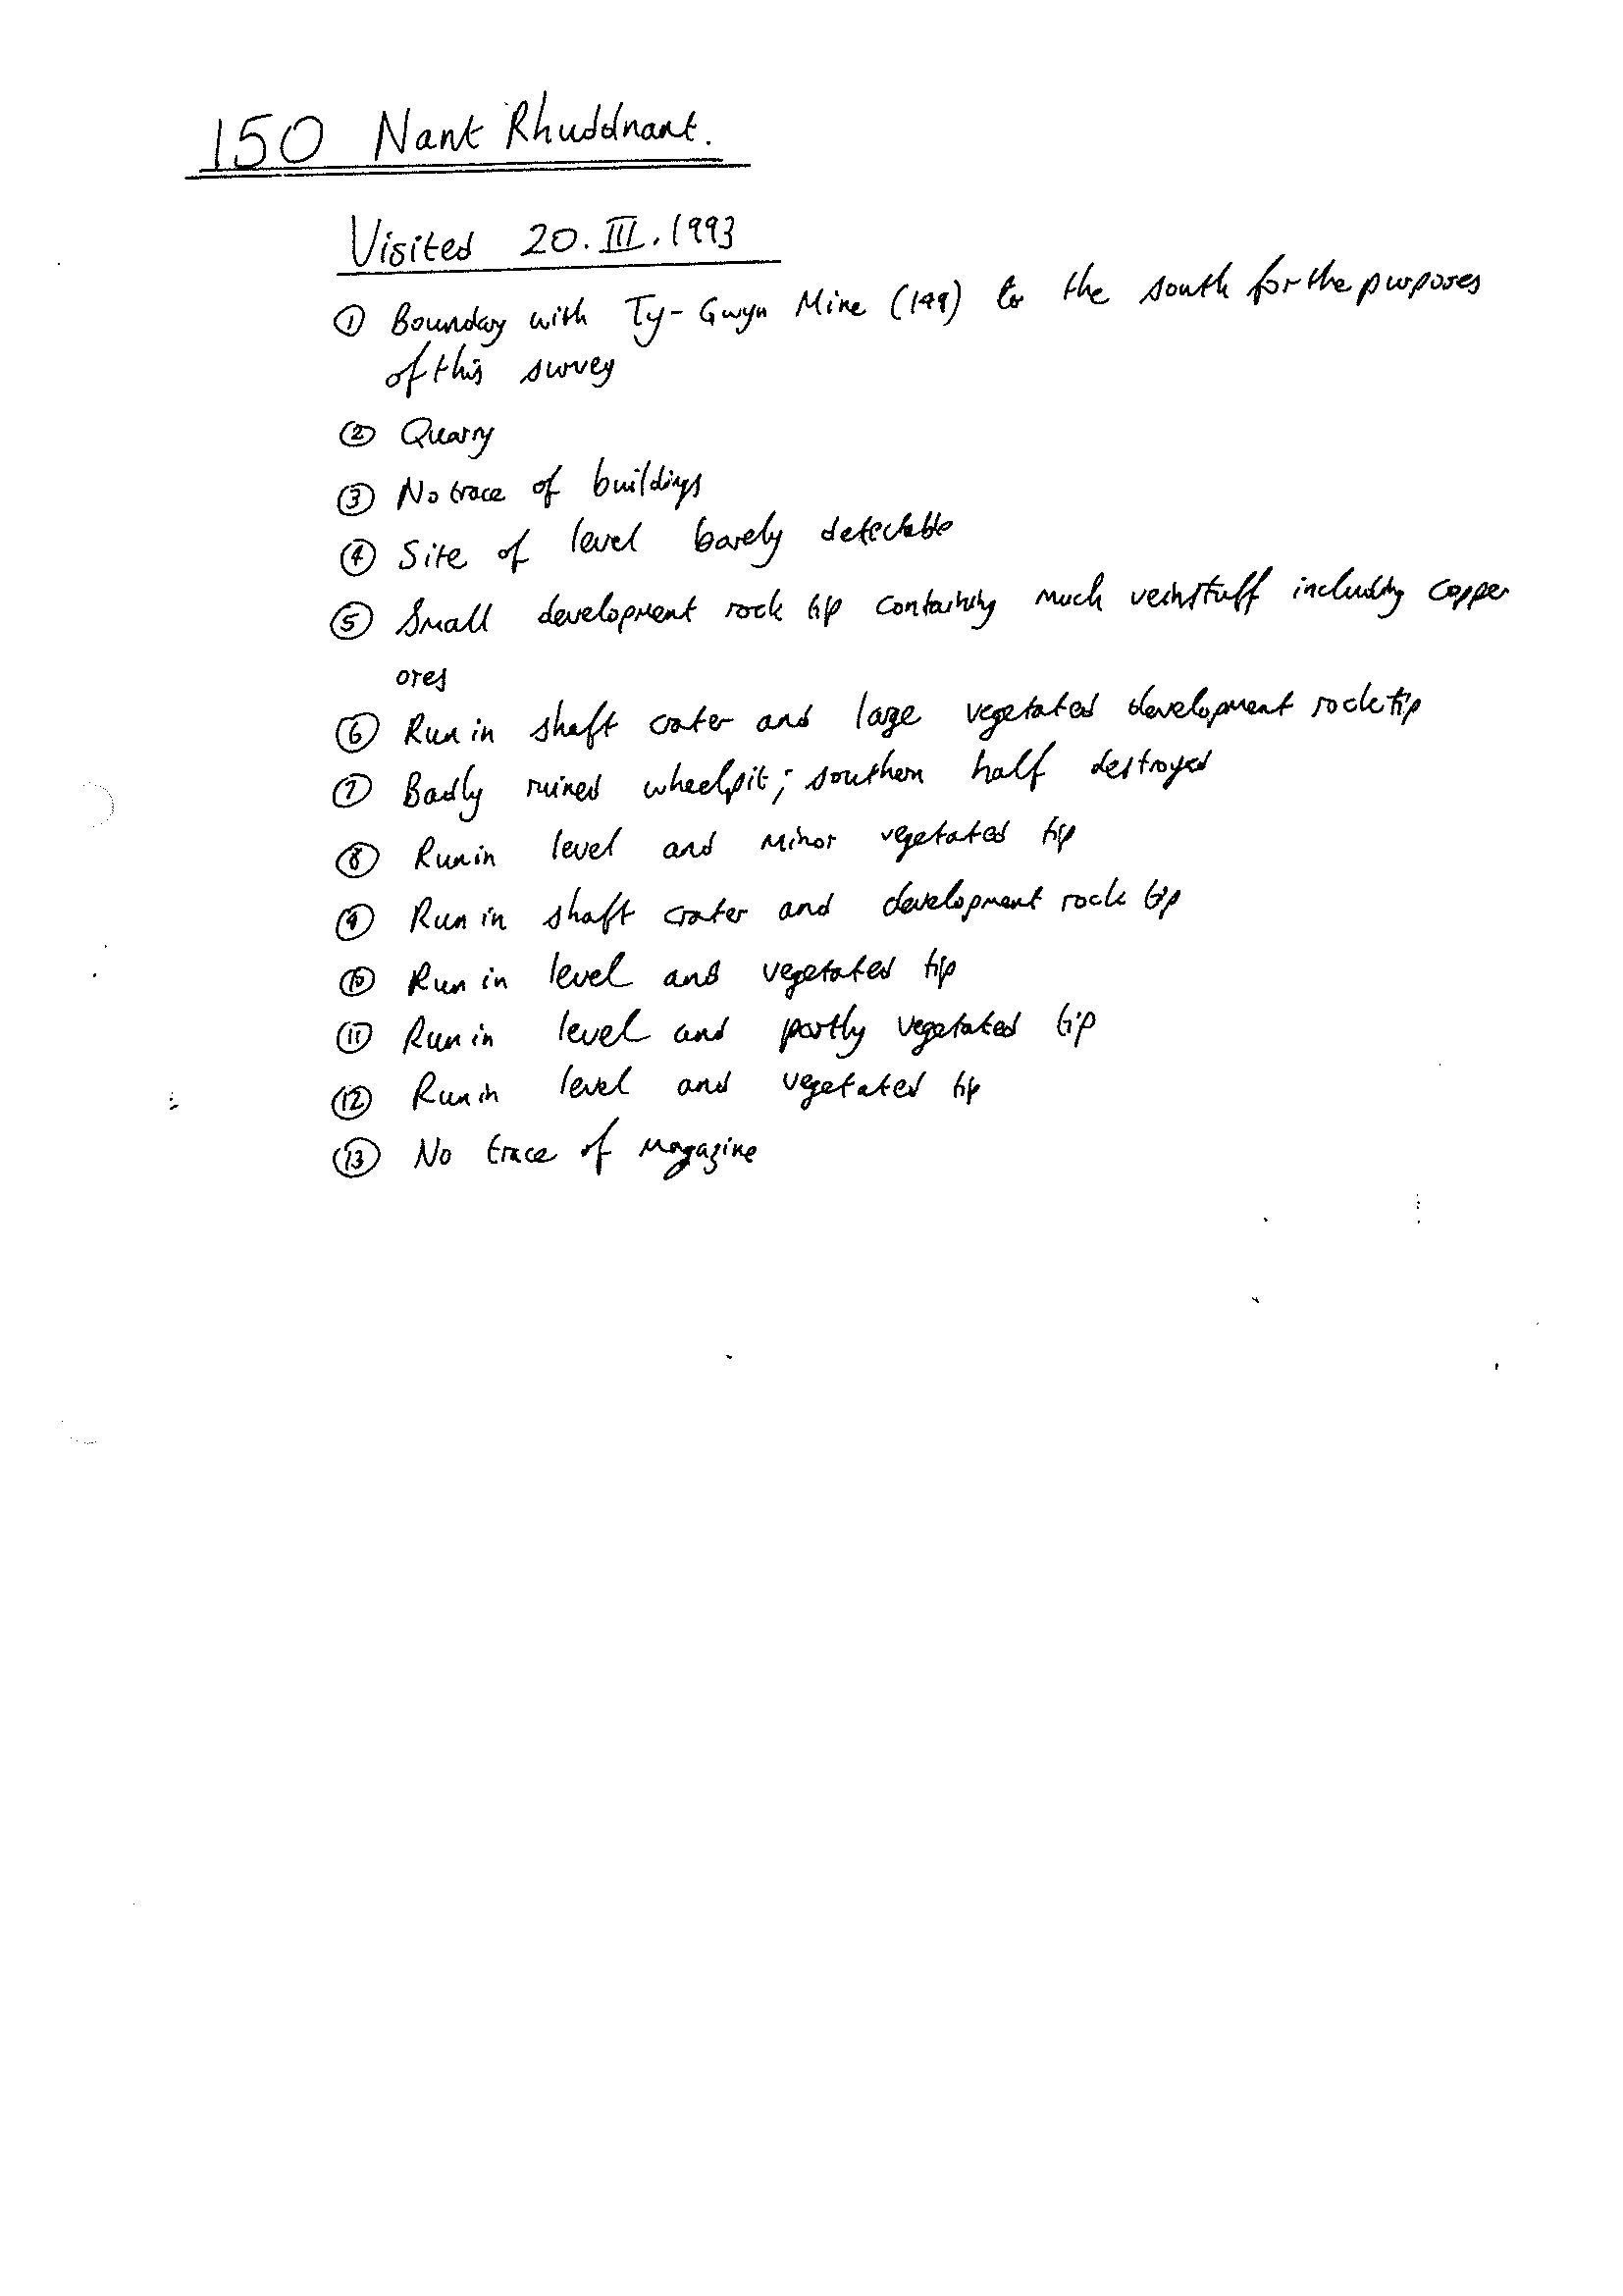 150 Nant Rhuddnant.
Visited 20.III.1993
① Boundary with Ty-Gwyn Mine (149) to the south for the purposes
of this survey
② Quarry
③ No trace of buildings
④ Site of level barely detectable
⑤ Small development rock tip containing much veinstuff including copper
ores
⑥ Run in shaft crater and large vegetated development rock tip
⑦ Badly ruined wheelpit; southern half destroyed
⑧ Run in level and minor vegetated tip
⑨ Run in shaft crater and development rock tip
⑩ Run in level and vegetated tip
⑪ Run in level and partly vegetated tip
⑫ Run in level and vegetated tip
⑬ No trace of magazine